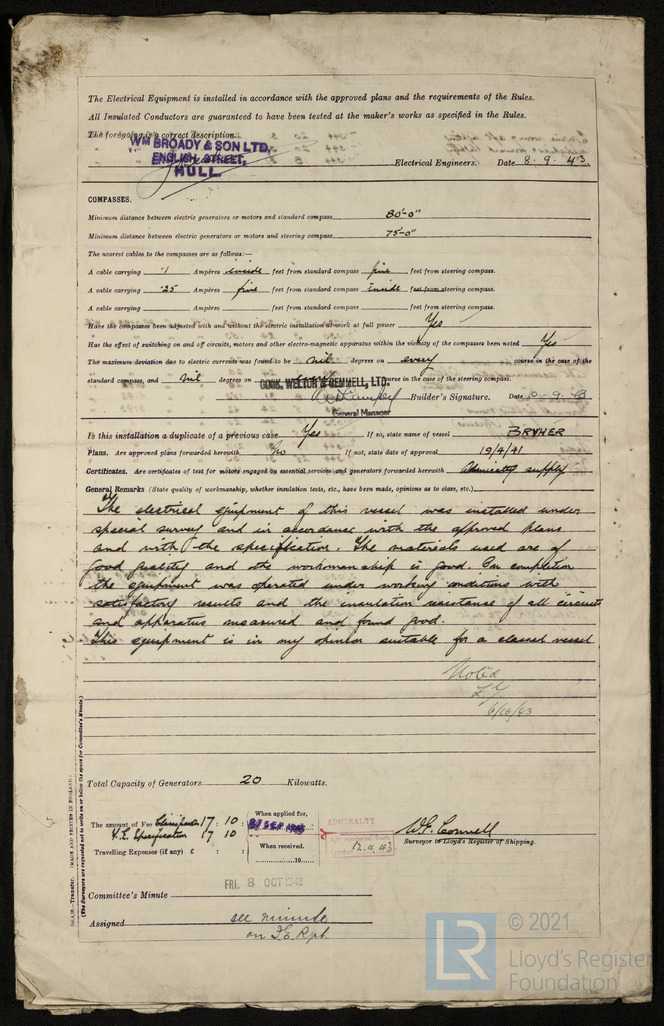 The Electrical Equipment is installed in accordance with the approved plans and the requirements of the Rules.
All Insulated Conductors are guaranteed to have been tested at the maker's works as specified in the Rules.
The foregoing is a correct description.
WM BROADY & SON LTD,
ENGLISH STREET,
HULL.
Electrical Engineers. Date 8.9.43.
COMPASSES.
Minimum distance between electric generators or motors and standard compass 80'-0"
Minimum distance between electric generators or motors and steering compass 75'-0"
The nearest cables to the compasses are as follows:—
A cable carrying .1 Ampères inside feet from standard compass five feet from steering compass.
A cable carrying .25 Ampères five feet from standard compass inside feet from steering compass.
A cable carrying Ampères feet from standard compass feet from steering compass.
Have the compasses been adjusted with and without the electric installation at work at full power Yes
Has the effect of switching on and off circuits, motors and other electro-magnetic apparatus within the vicinity of the compasses been noted Yes
The maximum deviation due to electric currents was found to be nil degrees on every course in the case of the
standard compass, and nil degrees on every course in the case of the steering compass.
COOK, WELTON & GEMMELL, LTD.
Builder's Signature. Date 10.9.43
General Manager
Is this installation a duplicate of a previous case Yes If so, state name of vessel BRYHER
Plans. Are approved plans forwarded herewith No If not, state date of approval 19/4/41
Certificates. Are certificates of test for motors engaged on essential services and generators forwarded herewith Admiralty supply
General Remarks (State quality of workmanship, whether insulation tests, etc., have been made, opinions as to class, etc.)
The electrical equipment of this vessel was installed under
special survey and in accordance with the approved plans
and with the specification. The materials used are of
good quality and the workmanship is good. On completion
the equipment was operated under working conditions with
satisfactory results and the insulation resistance of all circuits
and apparatus measured and found good.
This equipment is in my opinion suitable for a classed vessel
Noted
6/10/43
Total Capacity of Generators 20 Kilowatts.
The amount of Fee Classification 17 : 10 :
Specification 17 10
When applied for,
27 SEP 1943
Travelling Expenses (if any) £ : :
When received.
19
ADMIRALTY
12.11.43
W.F. Connell
Surveyor to Lloyd's Register of Shipping.
Committee's Minute FRI. 8 OCT 1943
Assigned see minute
on F.E. Rpt.
Transfer. (MADE AND PRINTED IN ENGLAND.)
(The Surveyors are requested not to write on or below the space for Committee's Minute.)
LR
© 2021
Lloyd's Register
Foundation